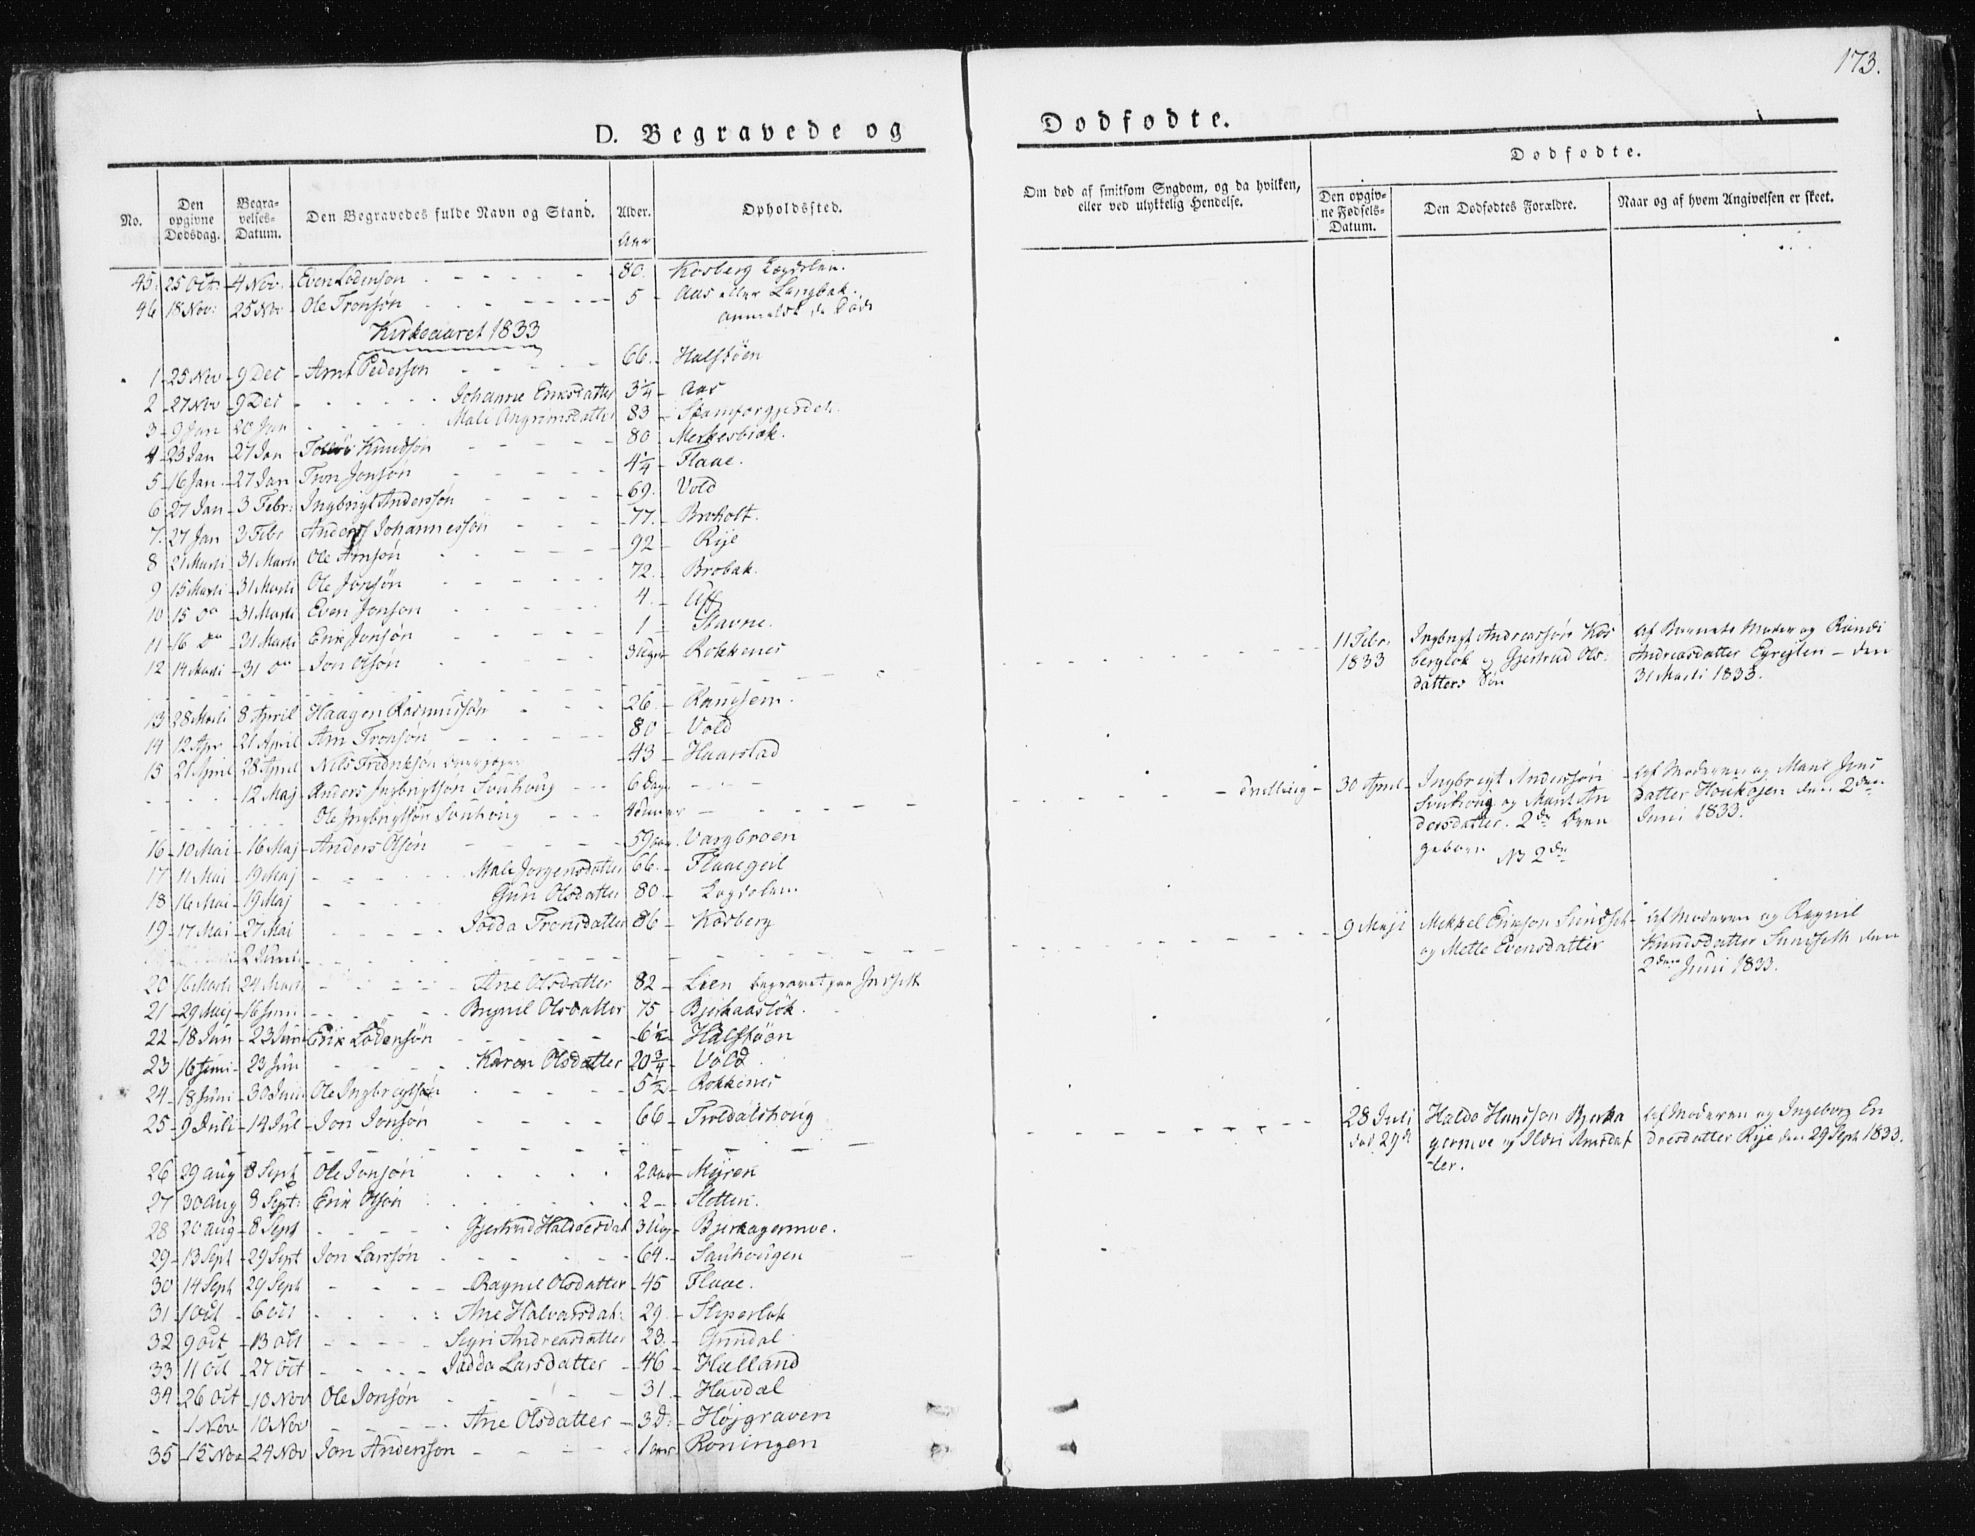 173.
D. Begravede og
Dødfødte.
No.
Den opgivne Dødsdag.
Begravelses-Datum.
Den Begravedes fulde Navn og Stand.
Alder.
Opholdssted.
Om død af smitsom Sygdom, og da hvilken, eller ved ulykkelig Hendelse.
Dødfødte.
Den opgivne Fødsels-Datum.
Den Dødfødtes Forældre.
Naar og af hvem Angivelsen er skeet.
Aar
45 25 Oct 4 Nov. Even Lodensøn 80. Kosberg Lægdslem.
46 18 Nov: 25 Nov Ole Tronsøn 5 Aas eller Langbak.
Kirkeaaret 1833
1 25 Nov 9 Dec Arnt Pedersøn 66. Halstøen
2 27 Nov 9 Dec Johanne Eriksdatter 3 1/4 Aas
3 9 Jan 20 Jan Mali Angrimsdatter 83
4 23 Jan 27 Jan Knudsøn 80 Merkesbæk.
5 16 Jan. 27 Jan Tron Jonsøn 4 1/4 Flaae.
6 27 Jan 3 Febr: Ingbrigt Anderssøn 69. Vold
7. 27 Jan 3 Febr Anders Johannessøn 77. Broholt.
8 21 Marti 31 Marti Ole Arnsøn 92 Rije
9 15 Marti 31 Marti Ole Jonsøn 72. Brobak.
10 15 do 31 Marti Even Jonsøn 4. Uff
11 16 do 31 Marti Erik Jonsøn 1 Stavne.
12 14 Marti 31 do Jon Olsøn 3 Uger Rokkenes
11 Febr. 1833 Ingbrigt Andreassøn Kos
bergløk og Gjertrud Ols:
datters Søn
Af Barnets Moder og Randi
Andreasdatter - den
31 Marti 1833.
13 28 Marti 8 April Haagen Rasmussøn 26. Ramsem.
14 12 Apr 21 April Arn Tronsøn 80 Vold
15 21 April 28 April Nils Fredriksøn 43 Haarstad
12 Maj Anders Ingbrigtsøn Svinhoug 6 Dage
Ole Ingbrigtsøn Svinhoug
Tvilling 30 April Ingbregt Anderssøn
Svinhoug og Marit An
dersdatter. 2den Søn
NB 2de
Af Moderen og Marit Jens
datter den 2den
Juni 1833.
16 10 Mai 16 Maj Anders Olsøn 59 aar. Vargbroen
17 11 Mai 19 Maj Mali Jørgensdatter 66. Flaaegeil
18 16 Mai 19 Maj Guri Olsdatter 80 Lægdslem
19 17 Mai 27 Mai Jødda Tronsdatter 86 Kosberg
2 Juni
9 Maji Mekkel Erikson Sundset
og Mette Evensdatter
Af Moderen og Ragnil
Knudsdatter Sundseth den
2den Juni 1833.
20 16 Marti 24 Marti Ane Olsdatter 82 Lien begravet paa Indseth
21 29 Maij 16 Juni Brynil Olsdatter 75 Bjerkaasløk.
22 18 Jun 23 Juni Erik Lodensøn 6 1/2 Halstøen
23 16 Juni 23 Jun Karen Olsdatter 20 3/4 Vold
24 18 Juni 30 Juni Ole Ingbregtsøn 5 1/2 Rokkenes
25 9 Juli 14 Jul Jon Jonsøn 66 Troldalshoug
28 Juli
død 29de
Haldo Hanssøn Bjerka
germoe og Ildri Arnsdat
ter.
Af Moderen og Ingeborg En
dresdatter Rije den 29 Sept 1833.
26 29 Aug 8 Sept Ole Jonsøn 2 aar Myren
27 30 Aug 8 Sept: Erik Olsøn 2 Sletten.
28 20 Aug 8 Sept Gjertrud Haldoesdat 3 Ug Bjerkagermoe.
29 13 Sept 29 Sept Jon Larssøn 64. Sauhougen
30 14 Sept 29 Sept Ragnil Olsdatter 45 Flaae.
31 1 Oct 6 Oct Ane Halvarsdat: 29
32 9 Oct 13 Oct Sigri Andreasdatter 23. Gundal
33 11 Oct 27 Oct Jødda Larsdatter 46 Hælland
34 26 Oct 10 Nov Ole Jonsøn 31. Hævdal
1 Nov 10 Nov Ane Olsdatter 3 D. Højgraven
35 15 Nov 24 Nov Jon Anderssøn 1 aar Roningen